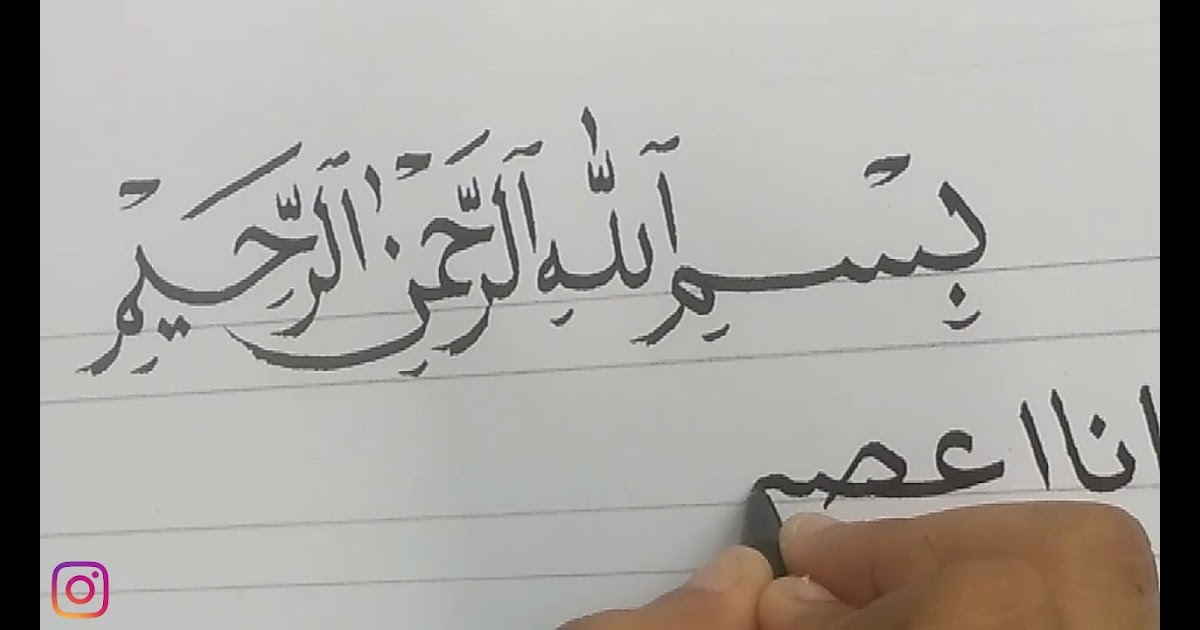 بِسْمِ ٱللَّهِ ٱلرَّحْمَٰنِ ٱلرَّحِيمِ
انا اعصم